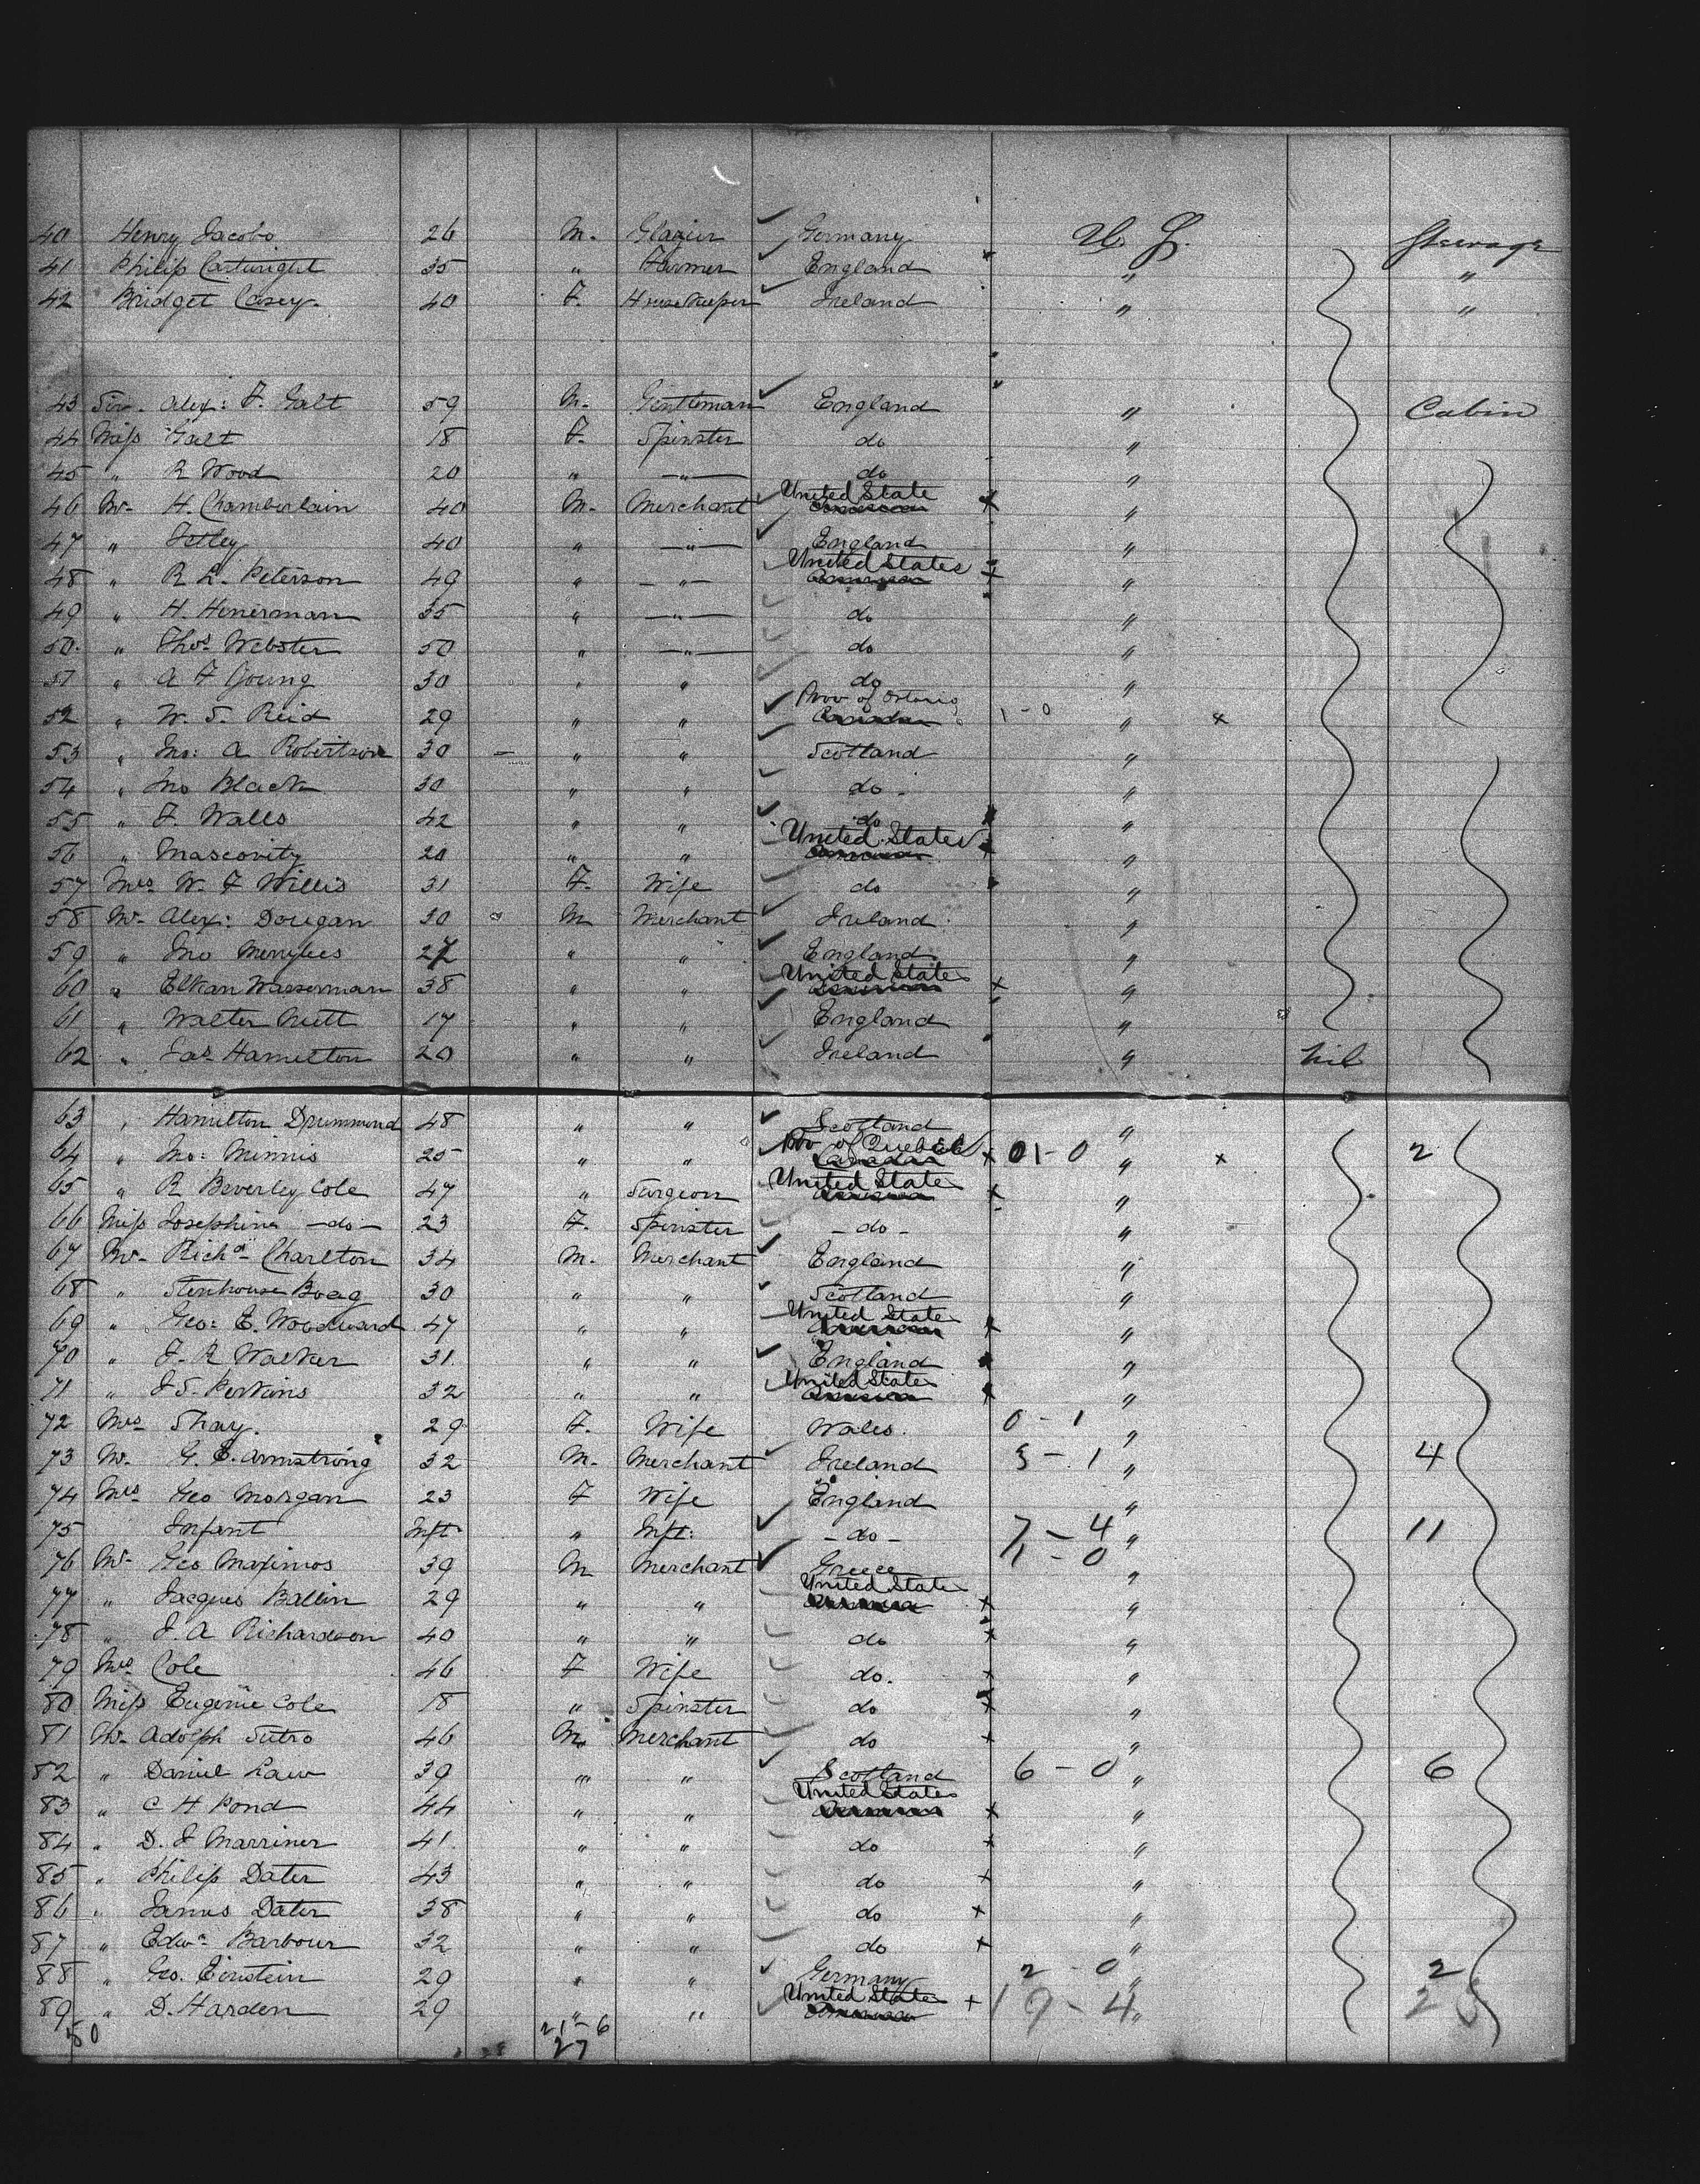 40 Henry Jacobs 26 M. Glazier Germany U. S. Steerage
41 Philip Cartwright 35 " Farmer England " "
42 Bridget Casey. 40 F. Housekeeper Ireland " "
43 Sir. Alex: F. Galt 59 M. Gentleman England " Cabin
44 Miss Galt 18 F. Spinster do "
45 " R Wood 20 " —"— do "
46 Mr. H. Chamberlain 40 M. Merchant United State "
47 " Tetley 40 " —"— England "
48 " R L. Peterson 49 " —"— United States "
49 " H. Henerman 35 " —"— do "
50 " Thos Webster 50 " —"— do "
51 " A F Young 30 " " do "
52 " W. S. Reid 29 " " Prov of Ontario 1-0 " x
53 " Jno: A Robertson 30 — " " Scotland "
54 " Jno Black 30 " " do - "
55 " F. Walls 42 " " do "
56 " Mascovity 20 " " United States "
57 Mrs W. F Willis 31 F. Wife do "
58 Mr. Alex: Dougan 30 M Merchant Ireland "
59 " Jno Merrylees 27 " " England "
60 " Elkan Wasserman 38 " " United States x "
61 " Walter Nutt 17 " " England "
62 " Jas Hamilton 20 " " Ireland " nil
63 " Hamilton Drummond 48 " " Scotland "
64 " Jno: Minnis 25 " " Prov of Quebec x 01-0 " x 2
65 " R Beverley Cole 47 " Surgeon United States x "
66 Miss Josephine -do- 23 F. Spinster - do - "
67 Mr. Richd Charlton 34 M. Merchant England "
68 " Stenhouse Boag 30 " " Scotland "
69 " Geo: E. Woodward 47 " " United States x "
70 " J. R Walker 31. " " England "
71 " J S. Perkins 32 " " United States x "
72 Mrs Shay. 29 F. Wife Wales. 0-1 "
73 Mr. G. E. Armstrong 32 M. Merchant Ireland 3-1 " 4
74 Mrs Geo Morgan 23 F Wife England "
75 Infant Inft " Inft: - do - 7-4 " 11
76 Mr. Geo Maximos 39 M Merchant Greece 1-0 "
77 " Jacques Ballin 29 " " United States x "
78 " J. A Richardson 40 " " do x "
79 Mrs Cole 46 F Wife do. x "
80 Miss Eugenie Cole 18 " Spinster do x "
81 Mr. Adolph Sutro 46 M. Merchant do x "
82 " Daniel Law 39 " " Scotland 6-0 " 6
83 " C H Pond 44 " " United States x "
84 " D. J Marriner 41. " " do x "
85 " Philip Dater 43 " " do x "
86 " James Dater 38 " " do x "
87 " Edwd Barbour 32 " " do x "
88 " Geo. Einstein 29 " " Germany 2-0 " 2
89 " D. Harden 29 " " United States x 19-4 " 23
50 21-6
27